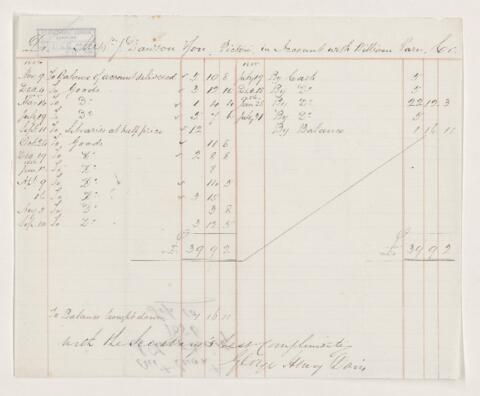 Dr. Dawson Hon. Pictou, in Account with William Cr.
Nov 9 To Balance of account delivered 2 10 8 July 19 By Cash 5
Dec 4 To Goods 3 12 10 Dec 18 By Do 5
Mar 14 To Do 1 4 4 Jan 28 By Do 22 12 3
July 19 To Do 5 7 6 July 21 By Do 5
Sept 11 To Libraries at half price 12 By Balance 1 16 11
Oct 24 To Goods 11 6
Dec 19 To Do 2 8 8
Jan To Do 9
Apl 9 To Do 14 3
To Do 3 15
Aug 2 To Do 3 8
Sep To Do 3 12 5
£ 39 9 2 £ 39 9 2
To Balance brought down 1 16 11
With the Secretary's best Compliments
George Henry Davis